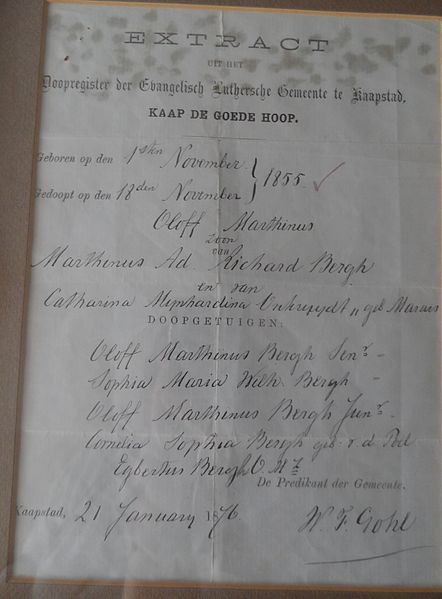 EXTRACT
UIT HET
Doopregister der Evangelisch Luthersche Gemeente te Kaapstad,
KAAP DE GOEDE HOOP.
Geboren op den 1sten November
1855
Gedoopt op den 18den November
Oloff Marthinus
zoon
van
Marthinus Ad Richard Bergh
en van
Catharina geb Marais
DOOPGETUIGEN:
Oloff Marthinus Bergh Senr
Sophia Maria Wilh Bergh
Oloff Marthinus Bergh Junr
Cornelia Sophia Bergh geb v. d. Poel
Egbertus Bergh
De Predikant der Gemeente.
Kaapstad, 21 January 1876
W. F. Gohl